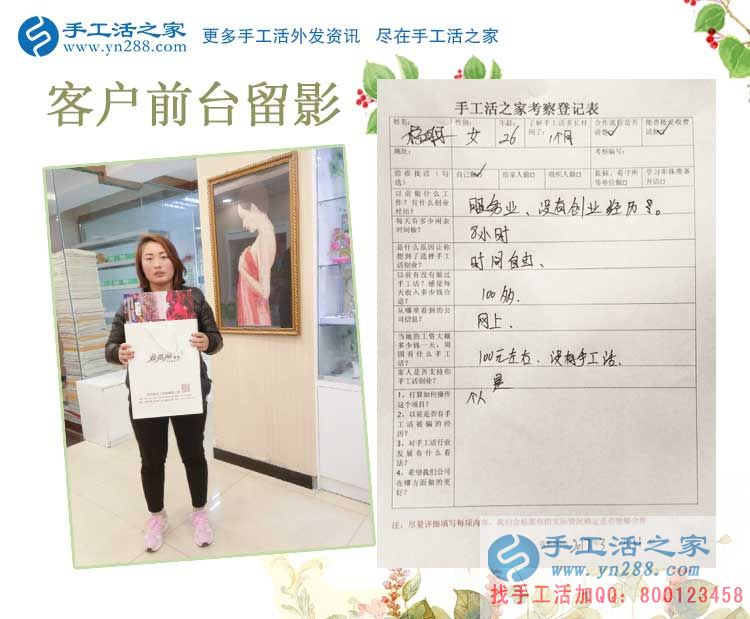 手工活之家
www.yn288.com
更多手工活外发资讯 尽在手工活之家
客户前台留影
手工活之家考察登记表
姓名: 性别: 女 年龄: 26 了解手工活多长时间了: 1个月 合作流程是否清楚✓ 能否接受收费试做✓
地址: 考察编号:
给谁找活(勾选) 自己做✓ 给家人做□ 残疾人做□ 监狱、看守所等单位做□ 学习串珠准备开店□
以前做什么工作?有什么创业经历? 服务业、没有创业经历。
每天有多少闲余时间做? 8小时
是什么原因让你想到了选择手工活创业? 时间自由、
以前有没有做过手工活?感觉每天收入多少钱合适? 100多
从哪里看到的公司信息? 网上、
当地的工资大概多少钱一天,周围有什么手工活? 100元左右、没有手工活.
家人是否支持你手工活创业? 是
1、打算如何操作这个项目? 个人
2、以前是否有手工活被骗的经历?
3、对手工活行业发展有什么看法?
4、希望我们公司在哪方面做的更好?
注:尽量详细填写每项内容,我们会根据你的实际情况确定是否能够合作
手工活之家
www.yn288.com
找手工活加QQ:800123458